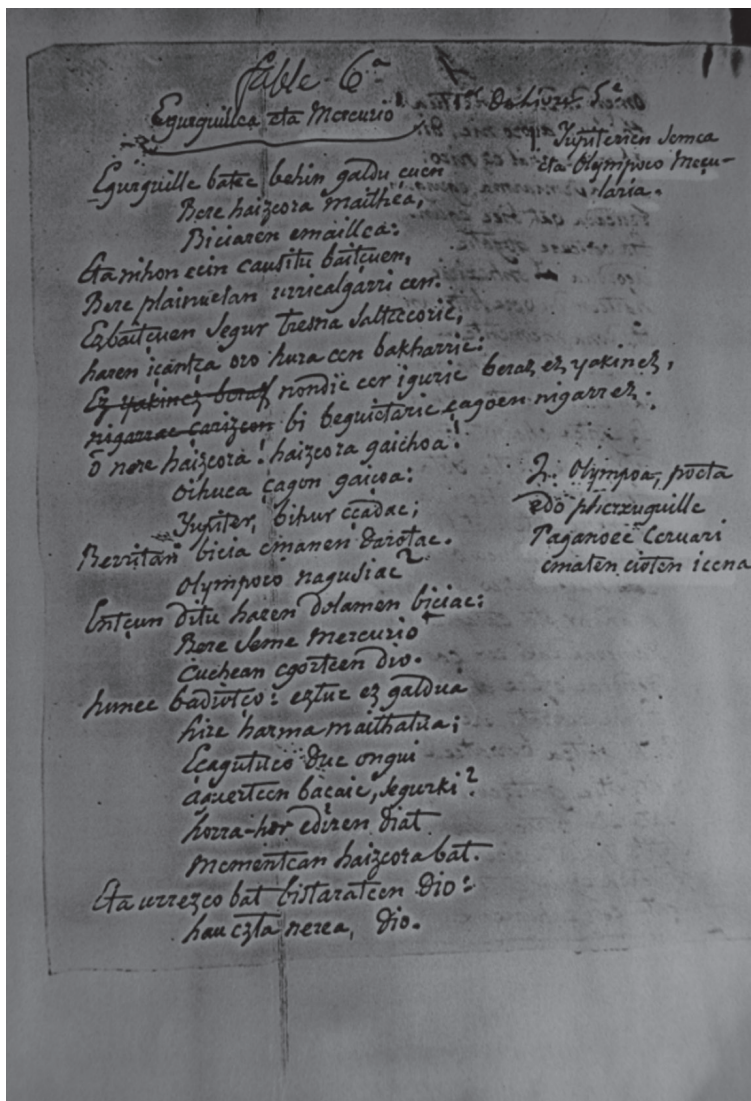 fable 6.a
Egurguillea eta Mercurio 1
1. Jupiterien Semea
eta Olympoco Meçu-
laria.
Egurguille batec behin galdu çuen
Bere haizcora maithea,
Biciaren emaillea:
Eta nihon ecin causitu baitçuen,
Bere plainuetan urricalgarri cen.
Ezbaitçuen segur tresna saltecoric,
haren içantça oro hura cen bakharric:
Ez yakinez beraz nondic cer iguric beraz ez yakinez,
nigarrac carizcon bi beguietaric çagoen nigarrez.
ô nere haizcora! haizcora gaichoa!
oihuca çagon gaiçoa:
Jupiter, bihur ççadac;
Berritan bicia emanen darotac.
Olympoco nagusiac 2
Ençun ditu haren dolamen biciac:
Bere seme Mercurio
Cuchean egortcen dio.
hunec badiotço: eztuc ez galdua
hire harma maithatua;
Eçagutuco duc ongui
aguertcen baçaic, segurki?
horra-hor ediren diat
mementean haizcora bat.
Eta urrezco bat bistaratcen dio:
hau ezta nerea, dio.
2. Olympoa, poeta
edo phertzuquille
Paganoec Ceruari
ematen cioten icena